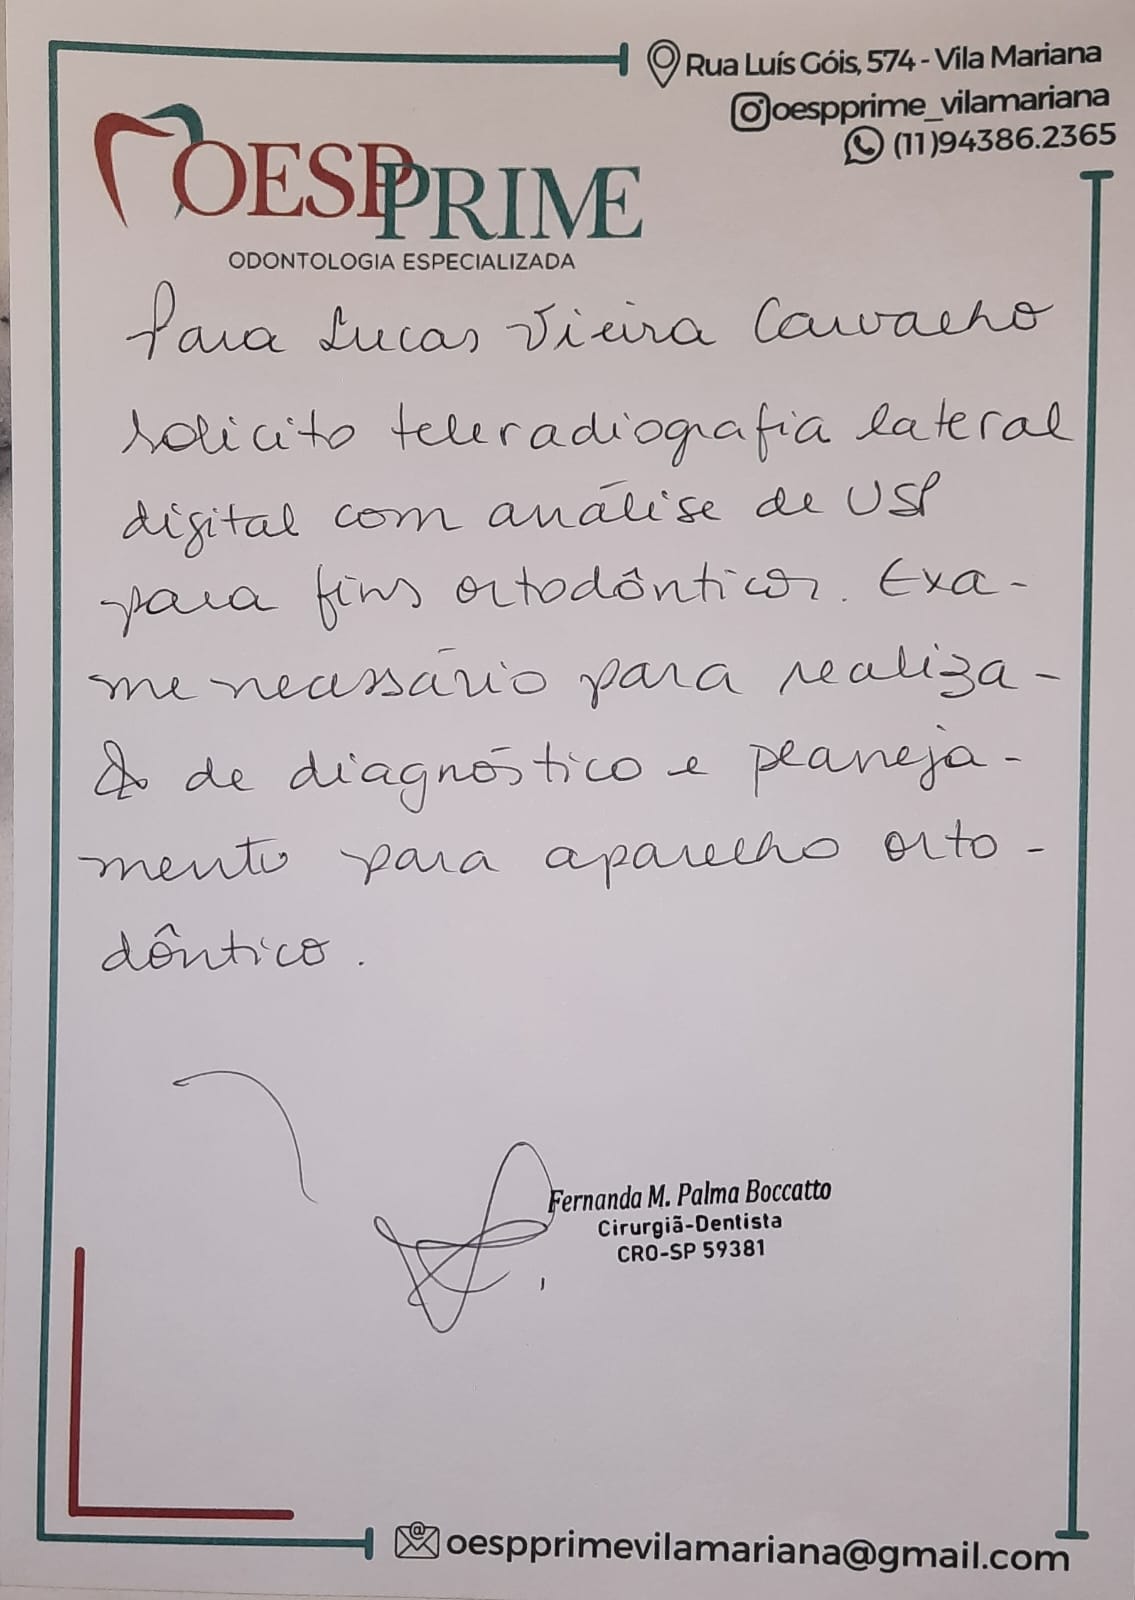 Rua Luís Góis, 574 - Vila Mariana
oespprime_vilamariana
(11)94386.2365
OESPPRIME
ODONTOLOGIA ESPECIALIZADA
Para Lucas Vieira Carvalho
solicito teleradiografia lateral
digital com análise de USP
para fins ortodônticos. Exa-
me necessário para realiza-
de diagnóstico e planeja-
mento para aparelho orto-
dôntico.
Fernanda M. Palma Boccatto
Cirurgiã-Dentista
CRO-SP 59381
oespprimevilamariana@gmail.com